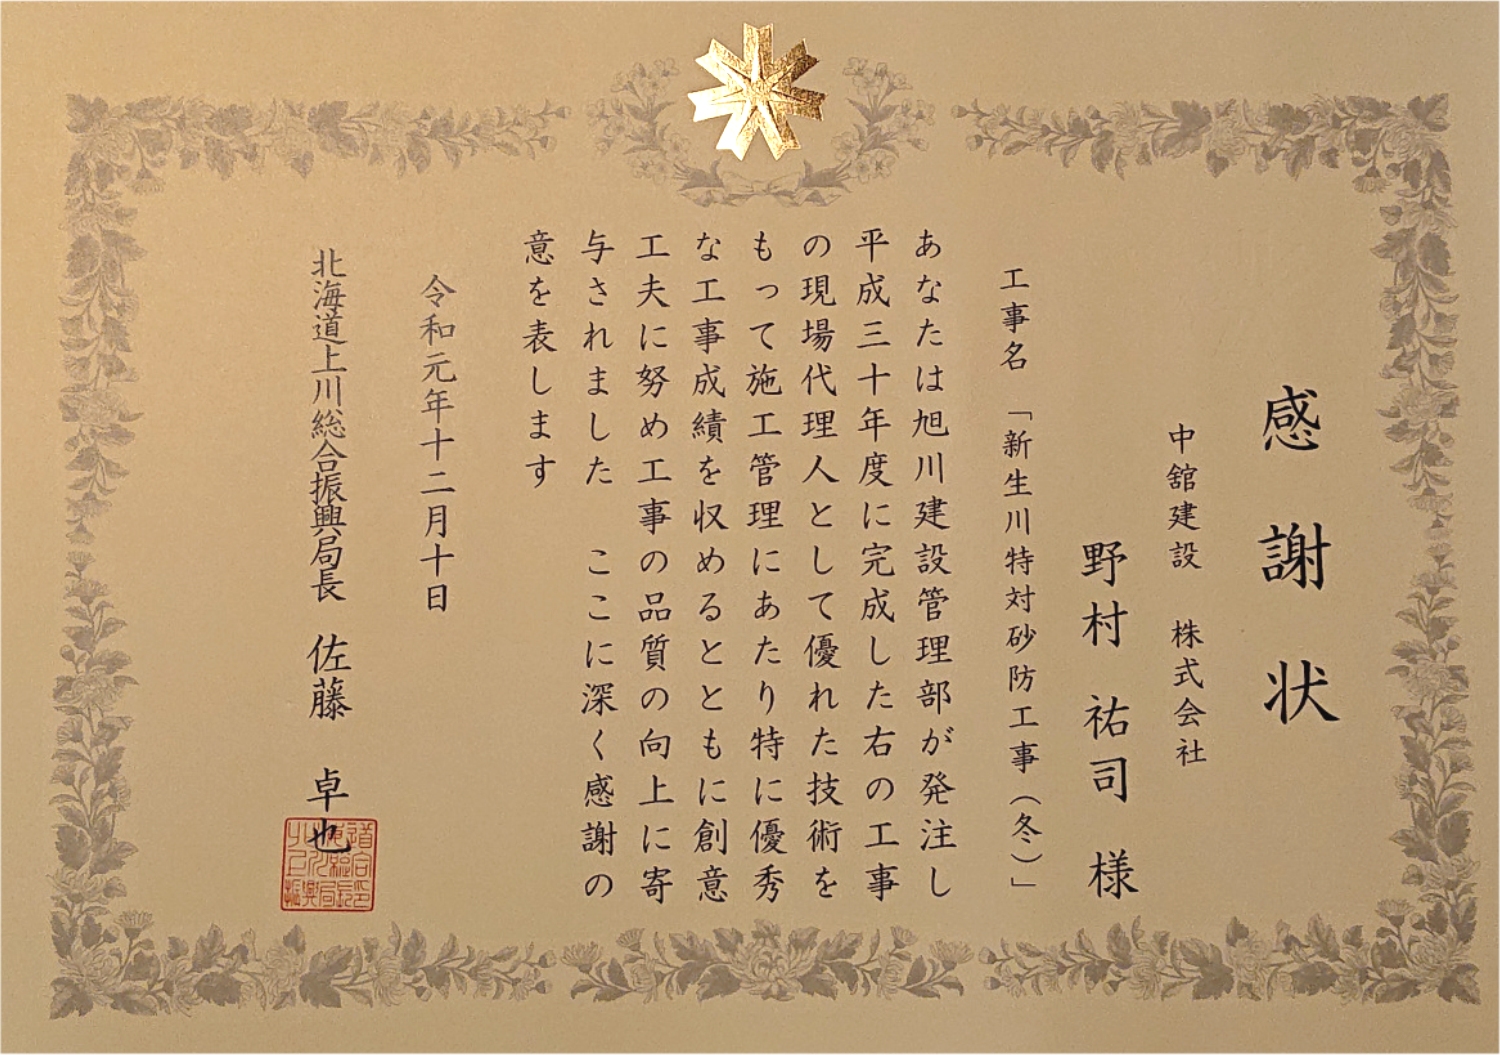 感謝状
中舘建設 株式会社
野村 祐司 様
工事名 「新生川特対砂防工事(冬)」
あなたは旭川建設管理部が発注し
平成三十年度に完成した右の工事
の現場代理人として優れた技術を
もって施工管理にあたり特に優秀
な工事成績を収めるとともに創意
工夫に努め工事の品質の向上に寄
与されました ここに深く感謝の
意を表します
令和元年十二月十日
北海道上川総合振興局長 佐藤 卓也